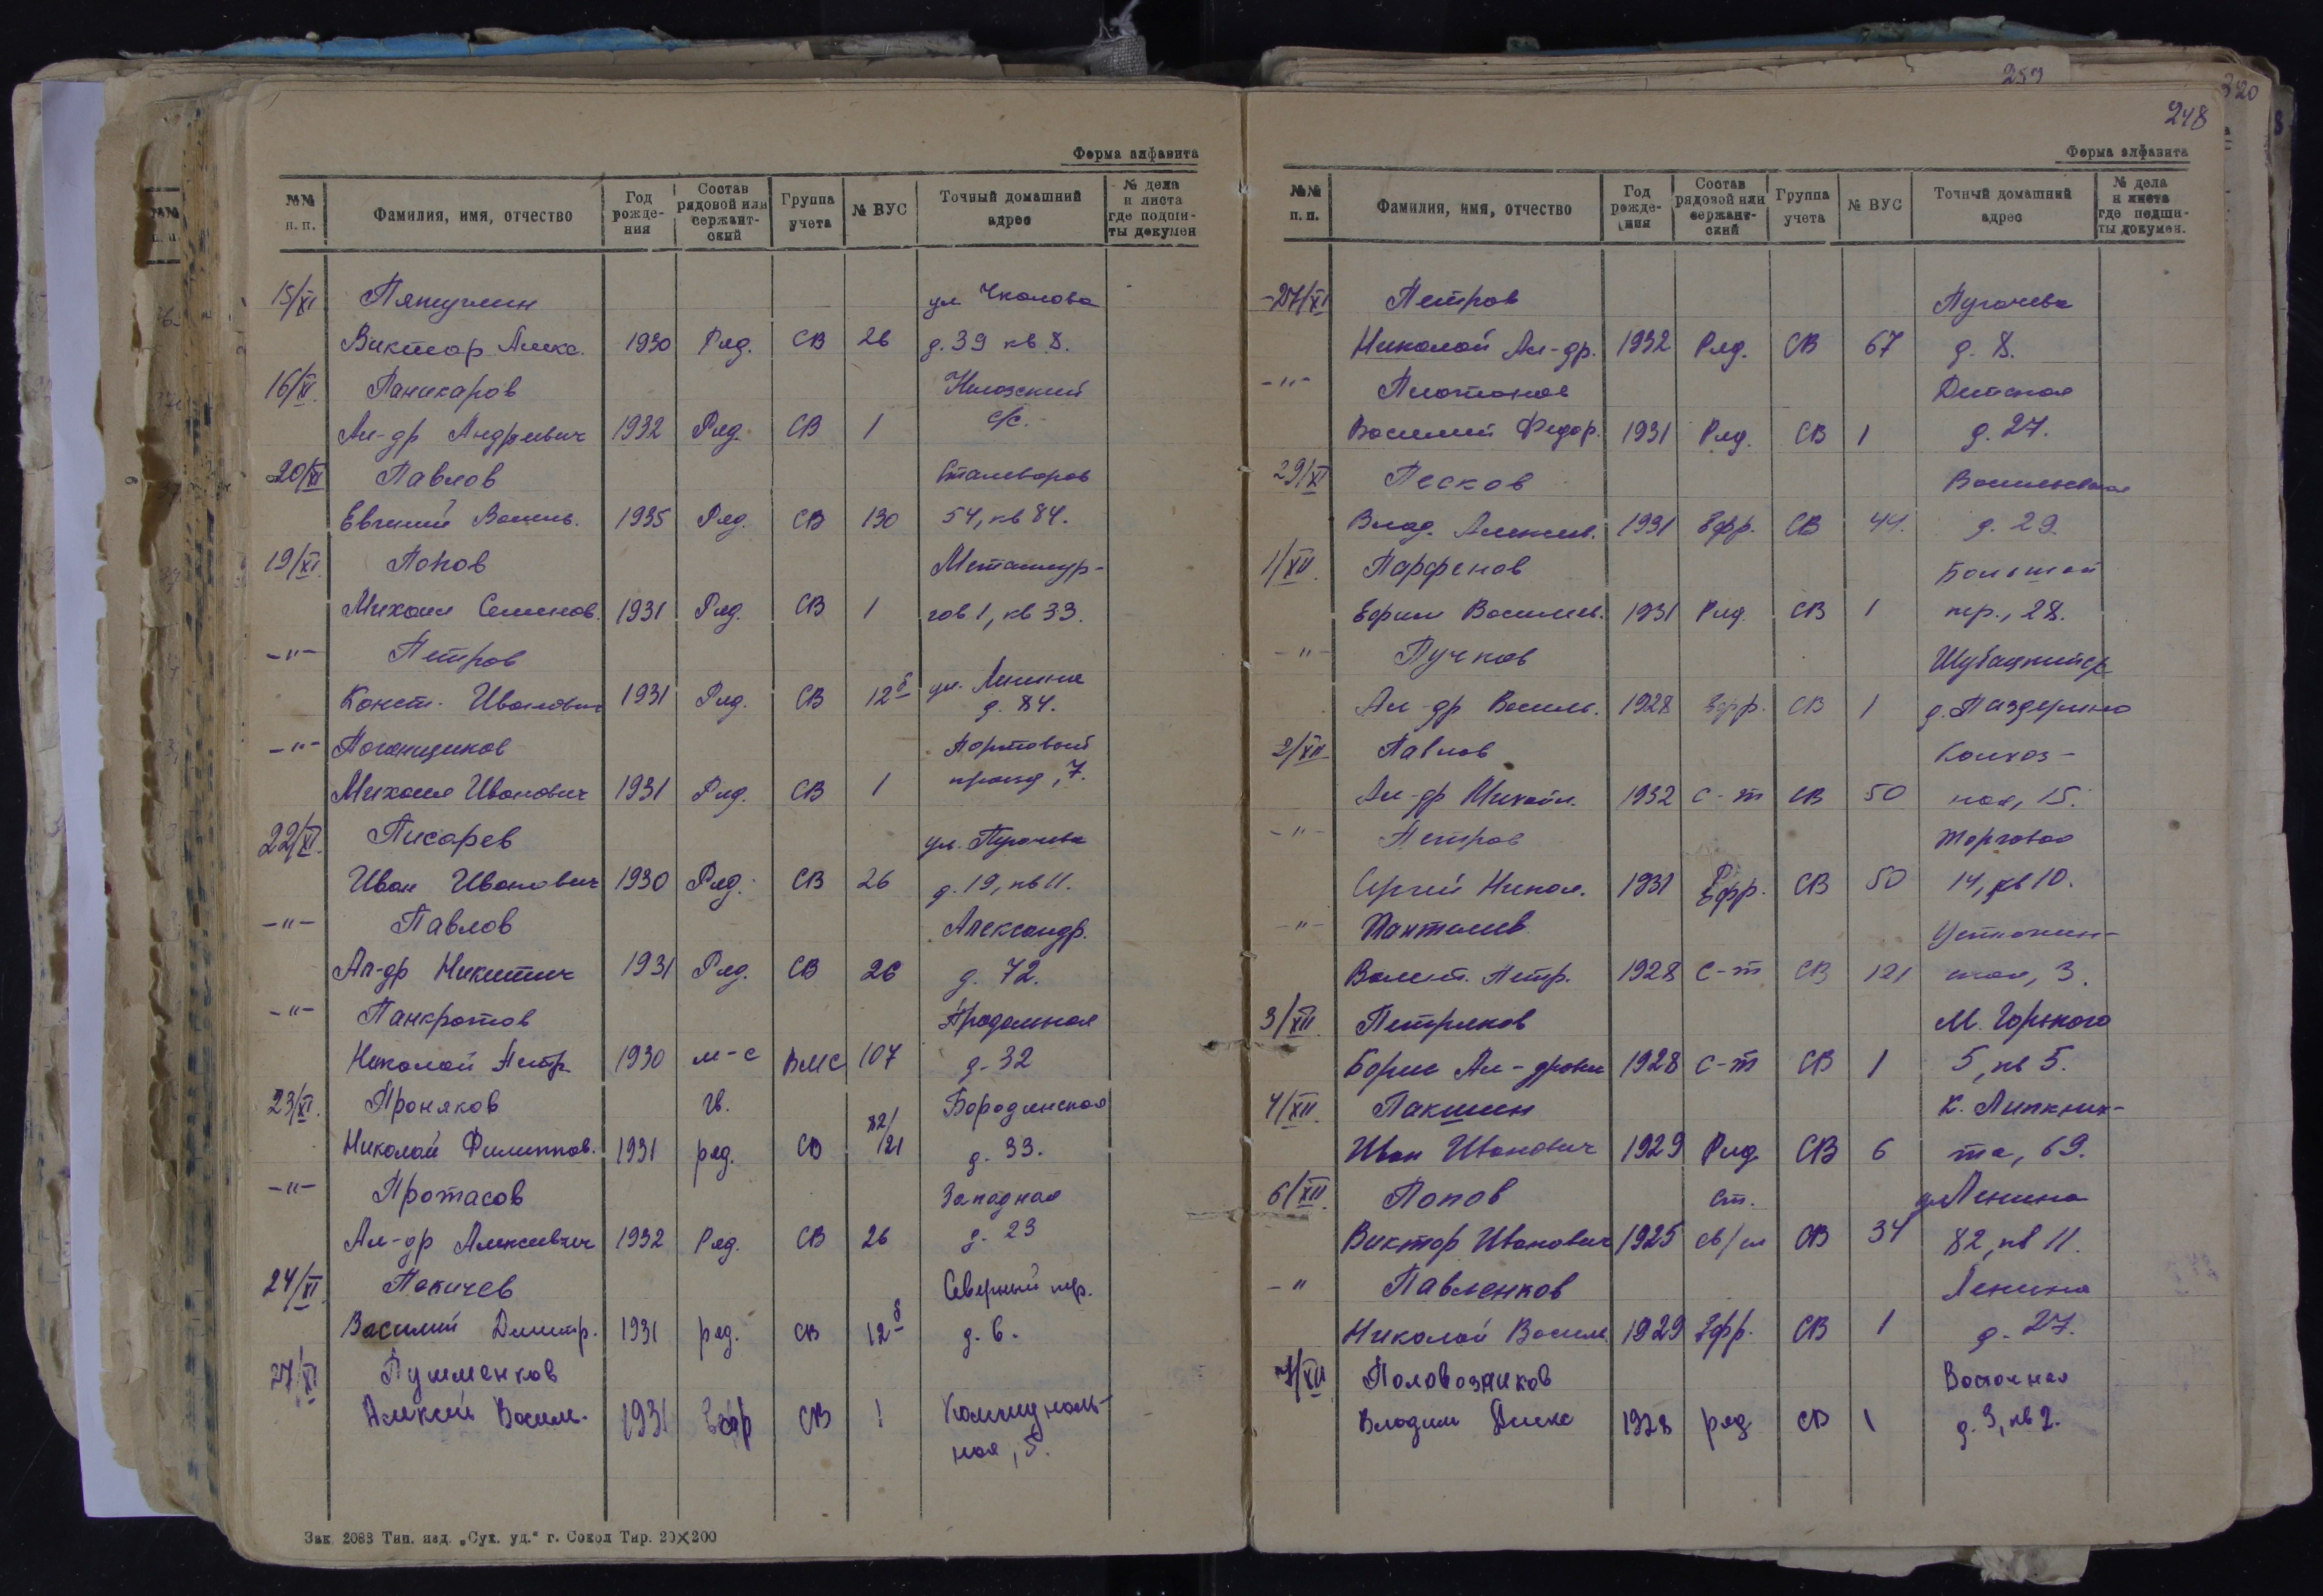 Форма алфавита
№№ п.п. Фамилия, имя, отчество Год рожде-ния Состав рядовой или сержант-ский Группа учета № ВУС Точный домашний адрес № дела и листа где подши-ты докумен
15/XI ул. Чкалова
Виктор Алекс. 1930 Ряд. СВ 26 д. 39 кв 8.
16/XI Паникаров
Ал-др Андреевич 1932 Ряд. СВ 1 с/с.
20/XI Павлов Сталеваров
Евгений Василь. 1935 Ряд. СВ 130 54, кв 84.
19/XI Попов Металлур-
Михаил Семенов. 1931 Ряд. СВ 1 гов 1, кв 33.
-"- Петров ул. Ленина
Конст. Иванович 1931 Ряд. СВ 12б д. 84.
-"- Поганщиков Портовый
Михаил Иванович 1931 Ряд. СВ 1 проезд, 7.
22/XI Писарев ул. Пугачева
Иван Иванович 1930 Ряд. СВ 26 д. 19, кв 11.
-"- Павлов Александр.
Ал-др Никитич 1931 Ряд. СВ 26 д. 72.
-"- Панкратов Продольная
Николай Петр. 1930 м-с ВМС 107 д. 32
23/XI Проняков гв. Бородинская
Николай Филиппов. 1931 ряд. СВ 82/121 д. 33.
-"- Протасов Западная
Ал-др Алексеевич 1932 Ряд. СВ 26 д. 23
24/XI Покичев Северный пер.
Василий Дмитр. 1931 ряд. СВ 12б д. 6.
27/XI Пушменков
Алексей Васил. 1931 Ефр СВ 1 Коммуналь-
ная, 5.
Зак. 2088 Тип. изд. „Сух. уд.“ г. Сокол Тир. 20×200
259
320
248
Форма алфавита
№№ п.п. Фамилия, имя, отчество Год рожде-ния Состав рядовой или сержант-ский Группа учета № ВУС Точный домашний адрес № дела и листа где подши-ты докумен.
27/XI Петров Пугачева
Николай Ал-др. 1932 Ряд. СВ 67 д. 8.
-"- Платонов Детская
Василий Федор. 1931 Ряд. СВ 1 д. 27.
29/XI Песков
Влад. Алексеев. 1931 Ефр. СВ 44. д. 29.
1/XII Парфенов Большой
Ефим Васильев. 1931 Ряд. СВ 1 пер., 28.
-"- Пучков
Ал-др Василь. 1928 Ефр. СВ 1 д. Паздерино
2/XII Павлов Колхоз-
Ал-др Михайл. 1932 с-т СВ 50 ная, 15.
-"- Петров Торговая
Сергей Никол. 1931 Ефр. СВ 50 14, кв 10.
-"- Пантелеев Устюжен-
Валент. Петр. 1928 с-т СВ 121 ская, 3.
3/XII Петряков М. Горького
Борис Ал-дрович 1928 с-т СВ 1 5, кв 5.
4/XII Пакшин К. Либкнех-
Иван Иванович 1929 Ряд СВ 6 та, 69.
6/XII Попов ст. ул Ленина
Виктор Иванович 1925 СВ 34 82, кв 11.
-" Павленков Ленина
Николай Васил. 1929 Ефр. СВ 1 д. 27.
7/XII Половозников Восточная
Владим Алекс 1928 ряд СВ 1 д. 3, кв 2.